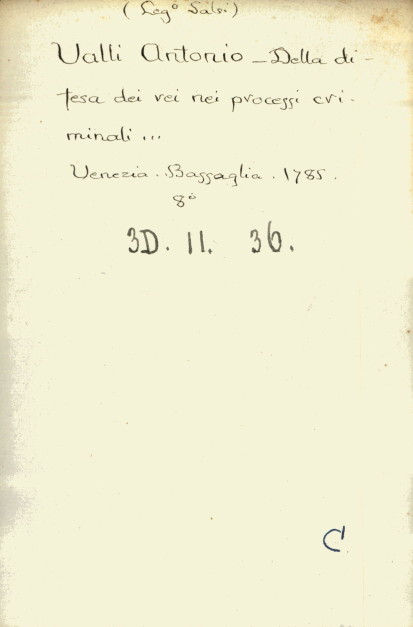 (Leg° Salsi)
Valli Antonio - Della di-
fesa dei rei nei processi cri-
minali ...
Venezia. Bassaglia. 1785.
8°
3D. 11. 36.
C